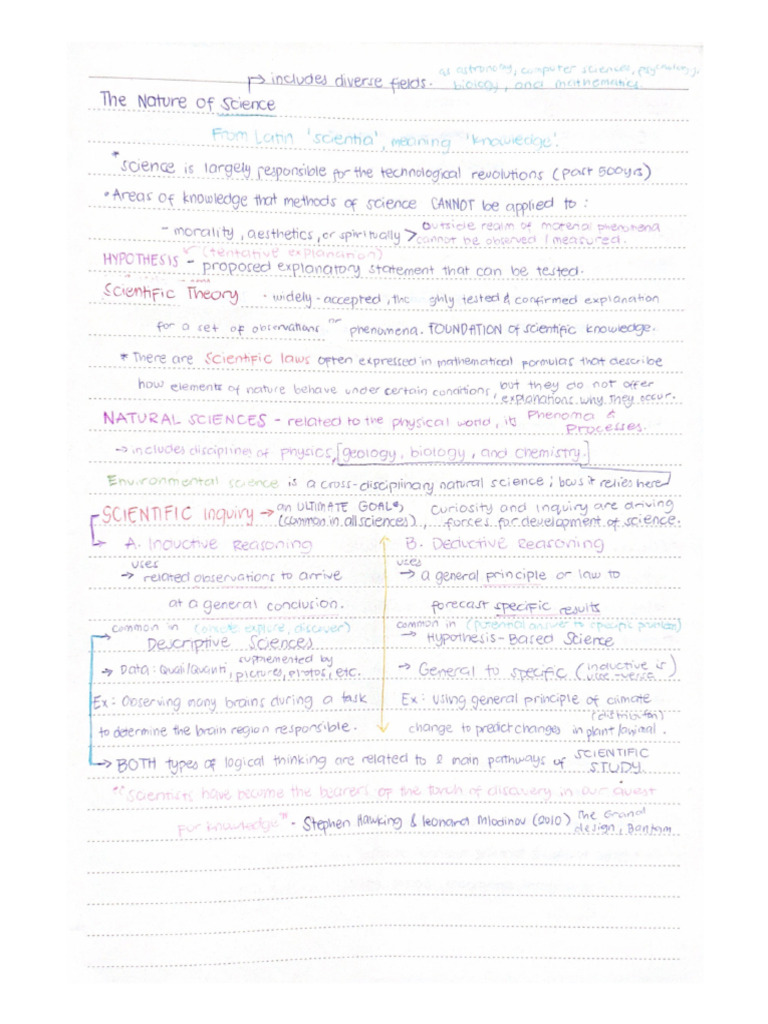 as astronomy, computer sciences, psychology,
includes diverse fields. biology, and mathematics
The Nature of Science
From Latin 'scientia', meaning 'knowledge'.
* science is largely responsible for the technological revolutions (past 500yrs)
• Areas of knowledge that methods of science CANNOT be applied to :
- morality, aesthetics, or spiritually > outside realm of material phenomena
cannot be observed / measured.
(tentative explanation)
HYPOTHESIS - proposed explanatory statement that can be tested.
Scientific Theory • widely-accepted, ghly tested & confirmed explanation
for a set of observations or phenomena. FOUNDATION of scientific knowledge.
* There are scientific laws often expressed in mathematical formulas that describe
how elements of nature behave under certain conditions, but they do not offer
explanations why they occur.
NATURAL SCIENCES - related to the physical world, its Phenoma &
Processes.
→ includes disciplines of physics, [geology, biology, and chemistry.]
Environmental science is a cross-disciplinary natural science ; it relies here
SCIENTIFIC Inquiry → an ULTIMATE GOAL curiosity and inquiry are driving
(common in all sciences) forces for development of science.
A. Inductive Reasoning B. Deductive Reasoning
uses uses
→ related observations to arrive → a general principle or law to
at a general conclusion. forecast specific results
common in explore, discover) common in (potential answer to specific problem)
Descriptive Sciences → Hypothesis-Based Science
→ Data: Quali/Quanti, supplemented by
pictures, photos, etc. → General to specific (inductive is
vice-versa)
Ex: Observing many brains during a task Ex: using general principle of climate
to determine the brain region responsible. change to predict changes in plant/animal.
BOTH types of logical thinking are related to 2 main pathways of SCIENTIFIC
STUDY.
"Scientists have become the bearers of the torch of discovery in our quest
for knowledge" - Stephen Hawking & Leonard Mlodinov (2010) The Grand
design, Bantam